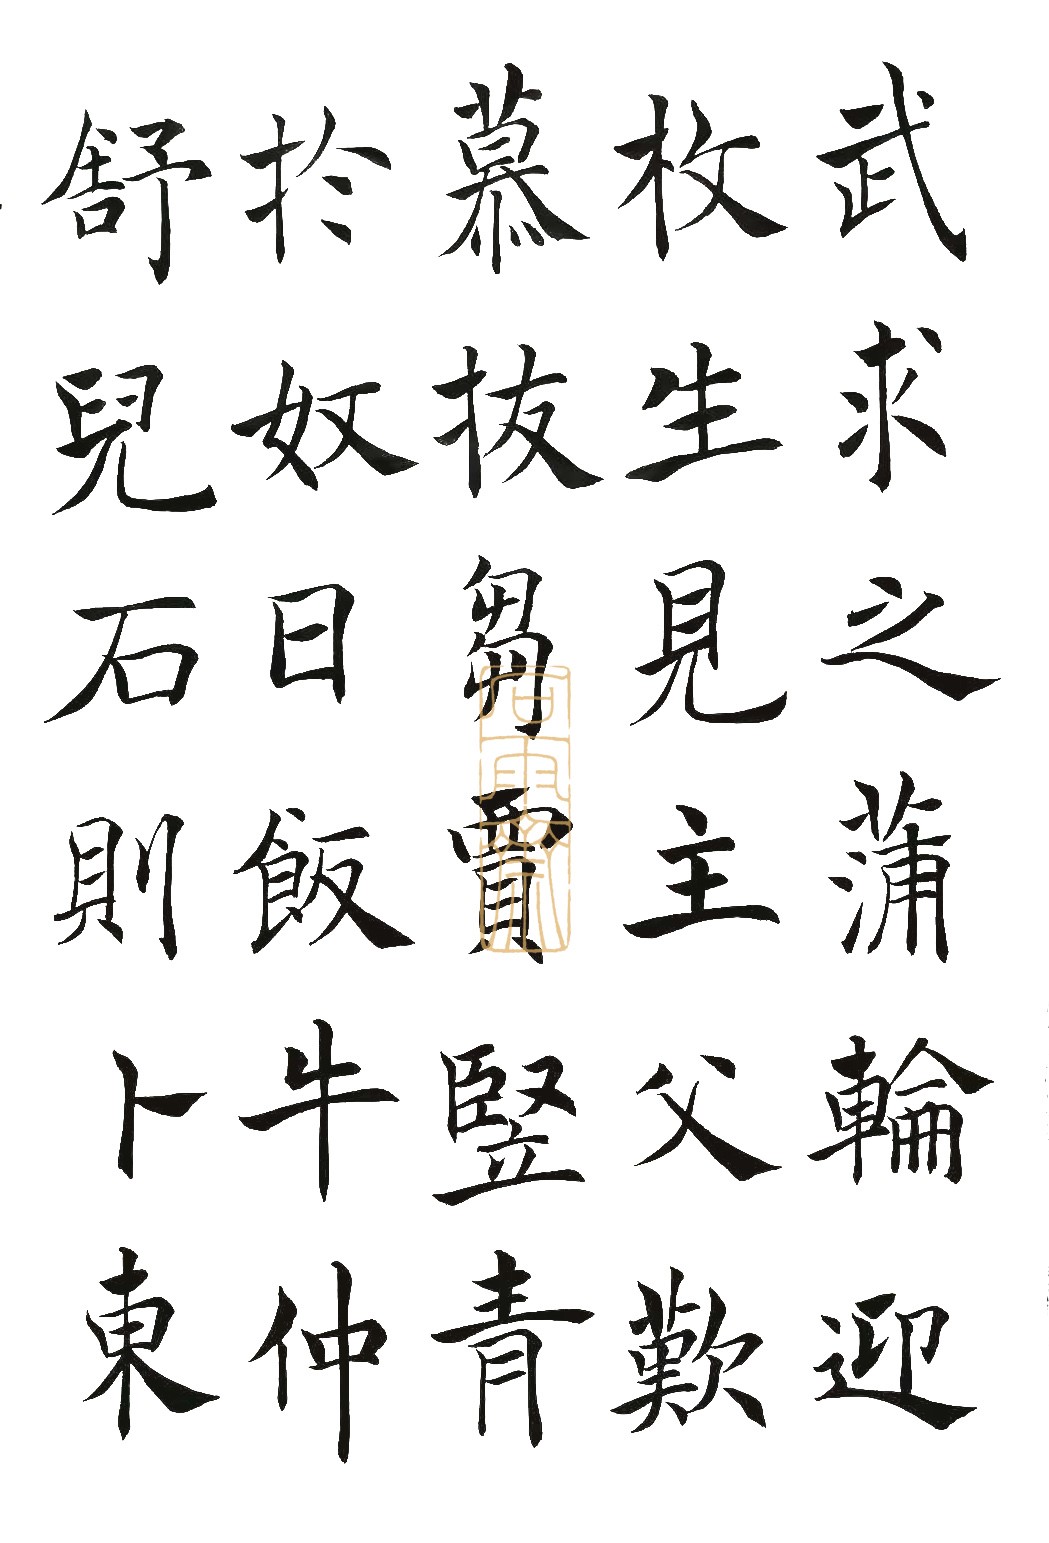 武求之蒲輪迎
枚生見主父歎
慕拔芻賈竪青
扵奴日飯牛仲
舒兒石則卜東